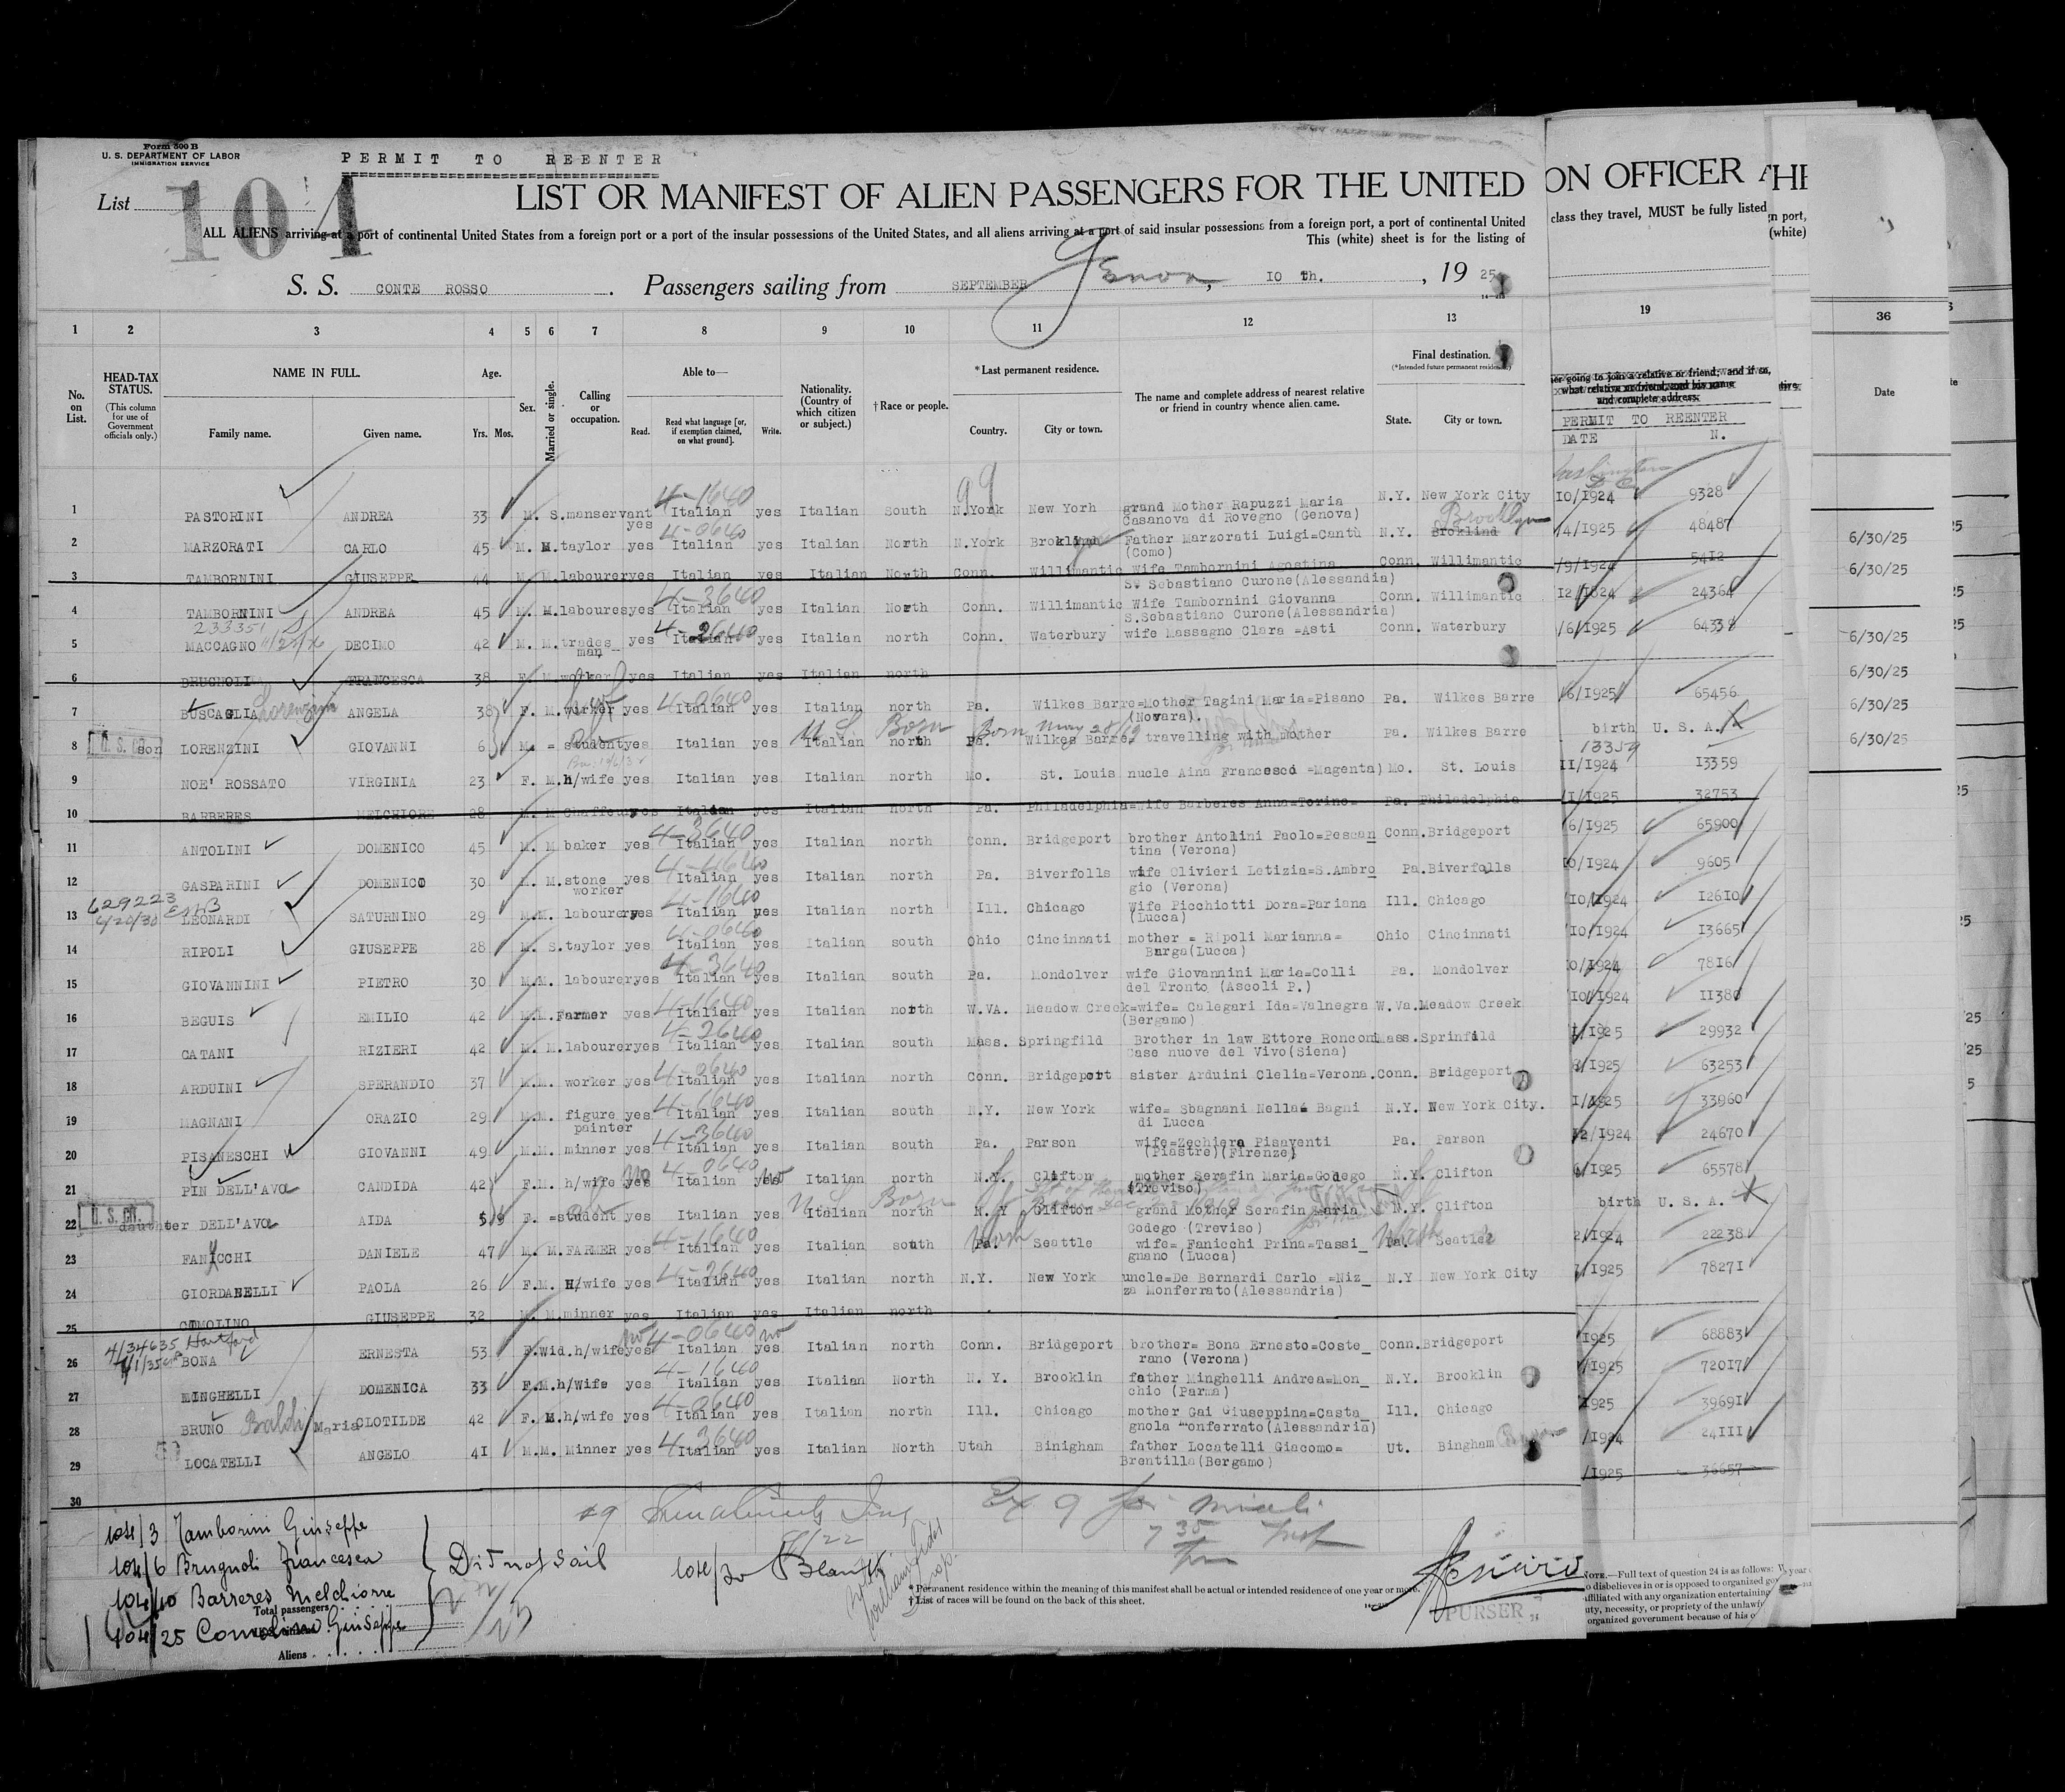 Form 500 B
U. S. DEPARTMENT OF LABOR
IMMIGRATION SERVICE
PERMIT TO REENTER
List 104
LIST OR MANIFEST OF ALIEN PASSENGERS FOR THE UNITED
ALL ALIENS arriving at a port of continental United States from a foreign port or a port of the insular possessions of the United States, and all aliens arriving at a port of said insular possessions from a foreign port, a port of continental United
This (white) sheet is for the listing of
S. S. CONTE ROSSO Passengers sailing from SEPTEMBER Genoa, 10 Th., 19 25
ON OFFICER A
class they travel, MUST be fully listed
HE
gn port,
(white)
1 2 3 4 5 6 7 8 9 10 11 12 13 19 36
No. on List.
HEAD-TAX STATUS. (This column for use of Government officials only.)
NAME IN FULL. Family name. Given name.
Age. Yrs. Mos.
Sex.
Married or single.
Calling or occupation.
Able to— Read. Read what language [or, if exemption claimed, on what ground]. Write.
Nationality. (Country of which citizen or subject.)
† Race or people.
* Last permanent residence. Country. City or town.
The name and complete address of nearest relative or friend in country whence alien came.
Final destination. (*Intended future permanent residence) State. City or town.
er going to join a relative or friend; and if so, what relative or friend, and his name and complete address.
PERMIT TO REENTER
DATE N.
Date
Washington D C
99
1 PASTORINI ANDREA 33 M. S. manservant yes 4-1640 Italian yes Italian South N.York New York grand Mother Rapuzzi Maria Casanova di Rovegno (Genova) N.Y. New York City 10/1924 9328
2 MARZORATI CARLO 45 M. M. taylor yes 4-0640 Italian yes Italian North N.York Broklind Father Marzorati Luigi=Cantù (Como) N.Y. Broklind Brooklyn /4/1925 48487 6/30/25
3 TAMBORNINI GIUSEPPE 44 M. M. labourer yes Italian yes Italian North Conn. Willimantic Wife Tambornini Agostina S. Sebastiano Curone(Alessandia) Conn. Willimantic /9/1924 5412 6/30/25
4 TAMBORNINI ANDREA 45 M. M. laboures yes 4-3640 Italian yes Italian North Conn. Willimantic Wife Tambornini Giovanna S.Sebastiano Curone(Alessandria) Conn. Willimantic 12/1824 24364
5 233351 MACCAGNO DECIMO 42 M. M. trades_ man yes 4-2640 Italian yes Italian north Conn. Waterbury wife Massagno Clara =Asti Conn. Waterbury /6/1925 64338 6/30/25
6 BHUGNOLI FRANCESCA 38 F. M. worker yes Italian yes Italian north 6/30/25
7 BUSCAGLIA Lorenzini ANGELA 38 F. M. worker yes 4-0640 Italian yes Italian north Pa. Wilkes Barre=Mother Tagini Maria=Pisano (Novara). Pa. Wilkes Barre /6/1925 65456 6/30/25
8 U. S. son LORENZINI GIOVANNI 6 M. = student yes Italian yes Italian north U S Born Pa. Born May 28/19 Wilkes Barre, travelling with mother Pa. Wilkes Barre birth U. S. A. 13359 6/30/25
9 NOE' ROSSATO VIRGINIA 23 F. M. h/wife yes Italian yes Italian north Mo. St. Louis nucle Aina Francesco =Magenta) Mo. St. Louis 11/1924 13359
10 BARBERES MELCHIORE 28 M. M chaffeur yes Italian yes Italian north Pa. Philadelphia=wife Barberes Anna=Torino= Pa. Philadelphia /1/1925 32753
11 ANTOLINI DOMENICO 45 M. M baker yes 4-3640 Italian yes Italian north Conn. Bridgeport brother Antolini Paolo=Pescan tina (Verona) Conn. Bridgeport 6/1925 65900
12 GASPARINI DOMENICO 30 M. M. stone worker yes Italian yes Italian north Pa. Biverfolls wife Olivieri Letizia=S.Ambro gio (Verona) Pa. Biverfolls 10/1924 9605
13 629223 6/20/30 LEONARDI SATURNINO 29 M.M. labourer yes 4-1640 Italian yes Italian north Ill. Chicago Wife Picchiotti Dora=Pariana (Lucca) Ill. Chicago /10/1924 12610
14 RIPOLI GIUSEPPE 28 M. S. taylor yes 4-0640 Italian yes Italian south Ohio Cincinnati mother = Ripoli Marianna= Barga(Lucca) Ohio Cincinnati /10/1924 13665
15 GIOVANNINI PIETRO 30 M.M. labourer yes 4-3640 Italian yes Italian south Pa. Mondolver wife Giovannini Maria=Colli del Tronto (Ascoli P.) Pa. Mondolver 0/1924 7816
16 BEGUIS EMILIO 42 M.M. Farmer yes 4-1640 Italian yes Italian north W.VA. Meadow Creek=wife= Calegari Ida=Valnegra (Bergamo) W.Va. Meadow Creek 10/1924 11380
17 CATANI RIZIERI 42 M. M. labourer yes 4-2640 Italian yes Italian south Mass. Springfild Brother in law Ettore Ronconi Case nuove del Vivo(Siena) Mass. Sprinfild 1/1925 29932
18 ARDUINI SPERANDIO 37 M.M. worker yes 4-0640 Italian yes Italian north Conn. Bridgeport sister Arduini Clelia=Verona. Conn. Bridgeport 6/1925 63253
19 MAGNANI ORAZIO 29 M.M. figure painter yes 4-1640 Italian yes Italian south N.Y. New York wife= Sbagnani Nella= Bagni di Lucca N.Y. New York City. 1/1925 33960
20 PISANESCHI GIOVANNI 49 M. M. minner yes 4-3640 Italian yes Italian south Pa. Parson wife=Zechiera Pisaventi (Piastre)(Firenze) Pa. Parson 12/1924 24670
21 PIN DELL'AVO CANDIDA 42 F.M. h/wife yes no 4-0640 Italian yes no Italian north N.Y. Clifton mother Serafin Maria=Godego (Treviso) N.Y. Clifton 6/1925 65578
22 U. S. daughter DELL'AVO AIDA 5 F. =student yes Italian yes Italian north U S Born N. Y Clifton grand Mother Serafin Maria Godego (Treviso) N.Y. Clifton birth U. S. A.
23 FANICCHI DANIELE 47 M. M. FARMER yes 4-1640 Italian yes Italian south Pa. Wash Seattle wife= Fanicchi Prina=Tassi_ gnano (Lucca) Pa. Wash Seattle 2/1924 22238
24 GIORDANELLI PAOLA 26 F.M. H/wife yes 4-2640 Italian yes Italian north N.Y. New York uncle=De Bernardi Carlo =Niz_ za Monferrato(Alessandria) N.Y New York City 7/1925 78271
25 COMOLINO GIUSEPPE 32 M. M. minner yes Italian yes Italian north
26 4/34635 Hartford BONA ERNESTA 53 F. Wid. h/wife yes no 4-0640 Italian yes no Italian north Conn. Bridgeport brother= Bona Ernesto=Coste_ rano (Verona) Conn. Bridgeport 1925 68883
27 MINGHELLI DOMENICA 33 F.M. h/Wife yes 4-1640 Italian yes Italian North N. Y. Brooklin father Minghelli Andrea=Mon_ chio (Parma) N.Y. Brooklin /1925 72017
28 BRUNO Baldi Maria CLOTILDE 42 F. M. h/wife yes 4-0640 Italian yes Italian north Ill. Chicago mother Gai Giuseppina=Casta_ gnola Monferrato(Alessandria) Ill. Chicago 1925 39691
29 LOCATELLI ANGELO 41 M.M. Minner yes 4 3640 Italian yes Italian North Utah Binigham father Locatelli Giacomo= Brentilla(Bergamo) Ut. Bingham /1924 24111
30 /1925 36657
104/3 Tamborini Giuseppe
104/6 Brugnoli Francesca
104/10 Barreres Melchiorre
104/25 Comolino Giuseppe
Did not sail
104/30 Blank
Total passengers
Aliens
* Permanent residence within the meaning of this manifest shall be actual or intended residence of one year or more.
† List of races will be found on the back of this sheet.
PURSER
NOTE.—Full text of question 24 is as follows:
o disbelieves in or is opposed to organized gov
affiliated with any organization entertaining
uty, necessity, or propriety of the unlawf
organized government because of his o